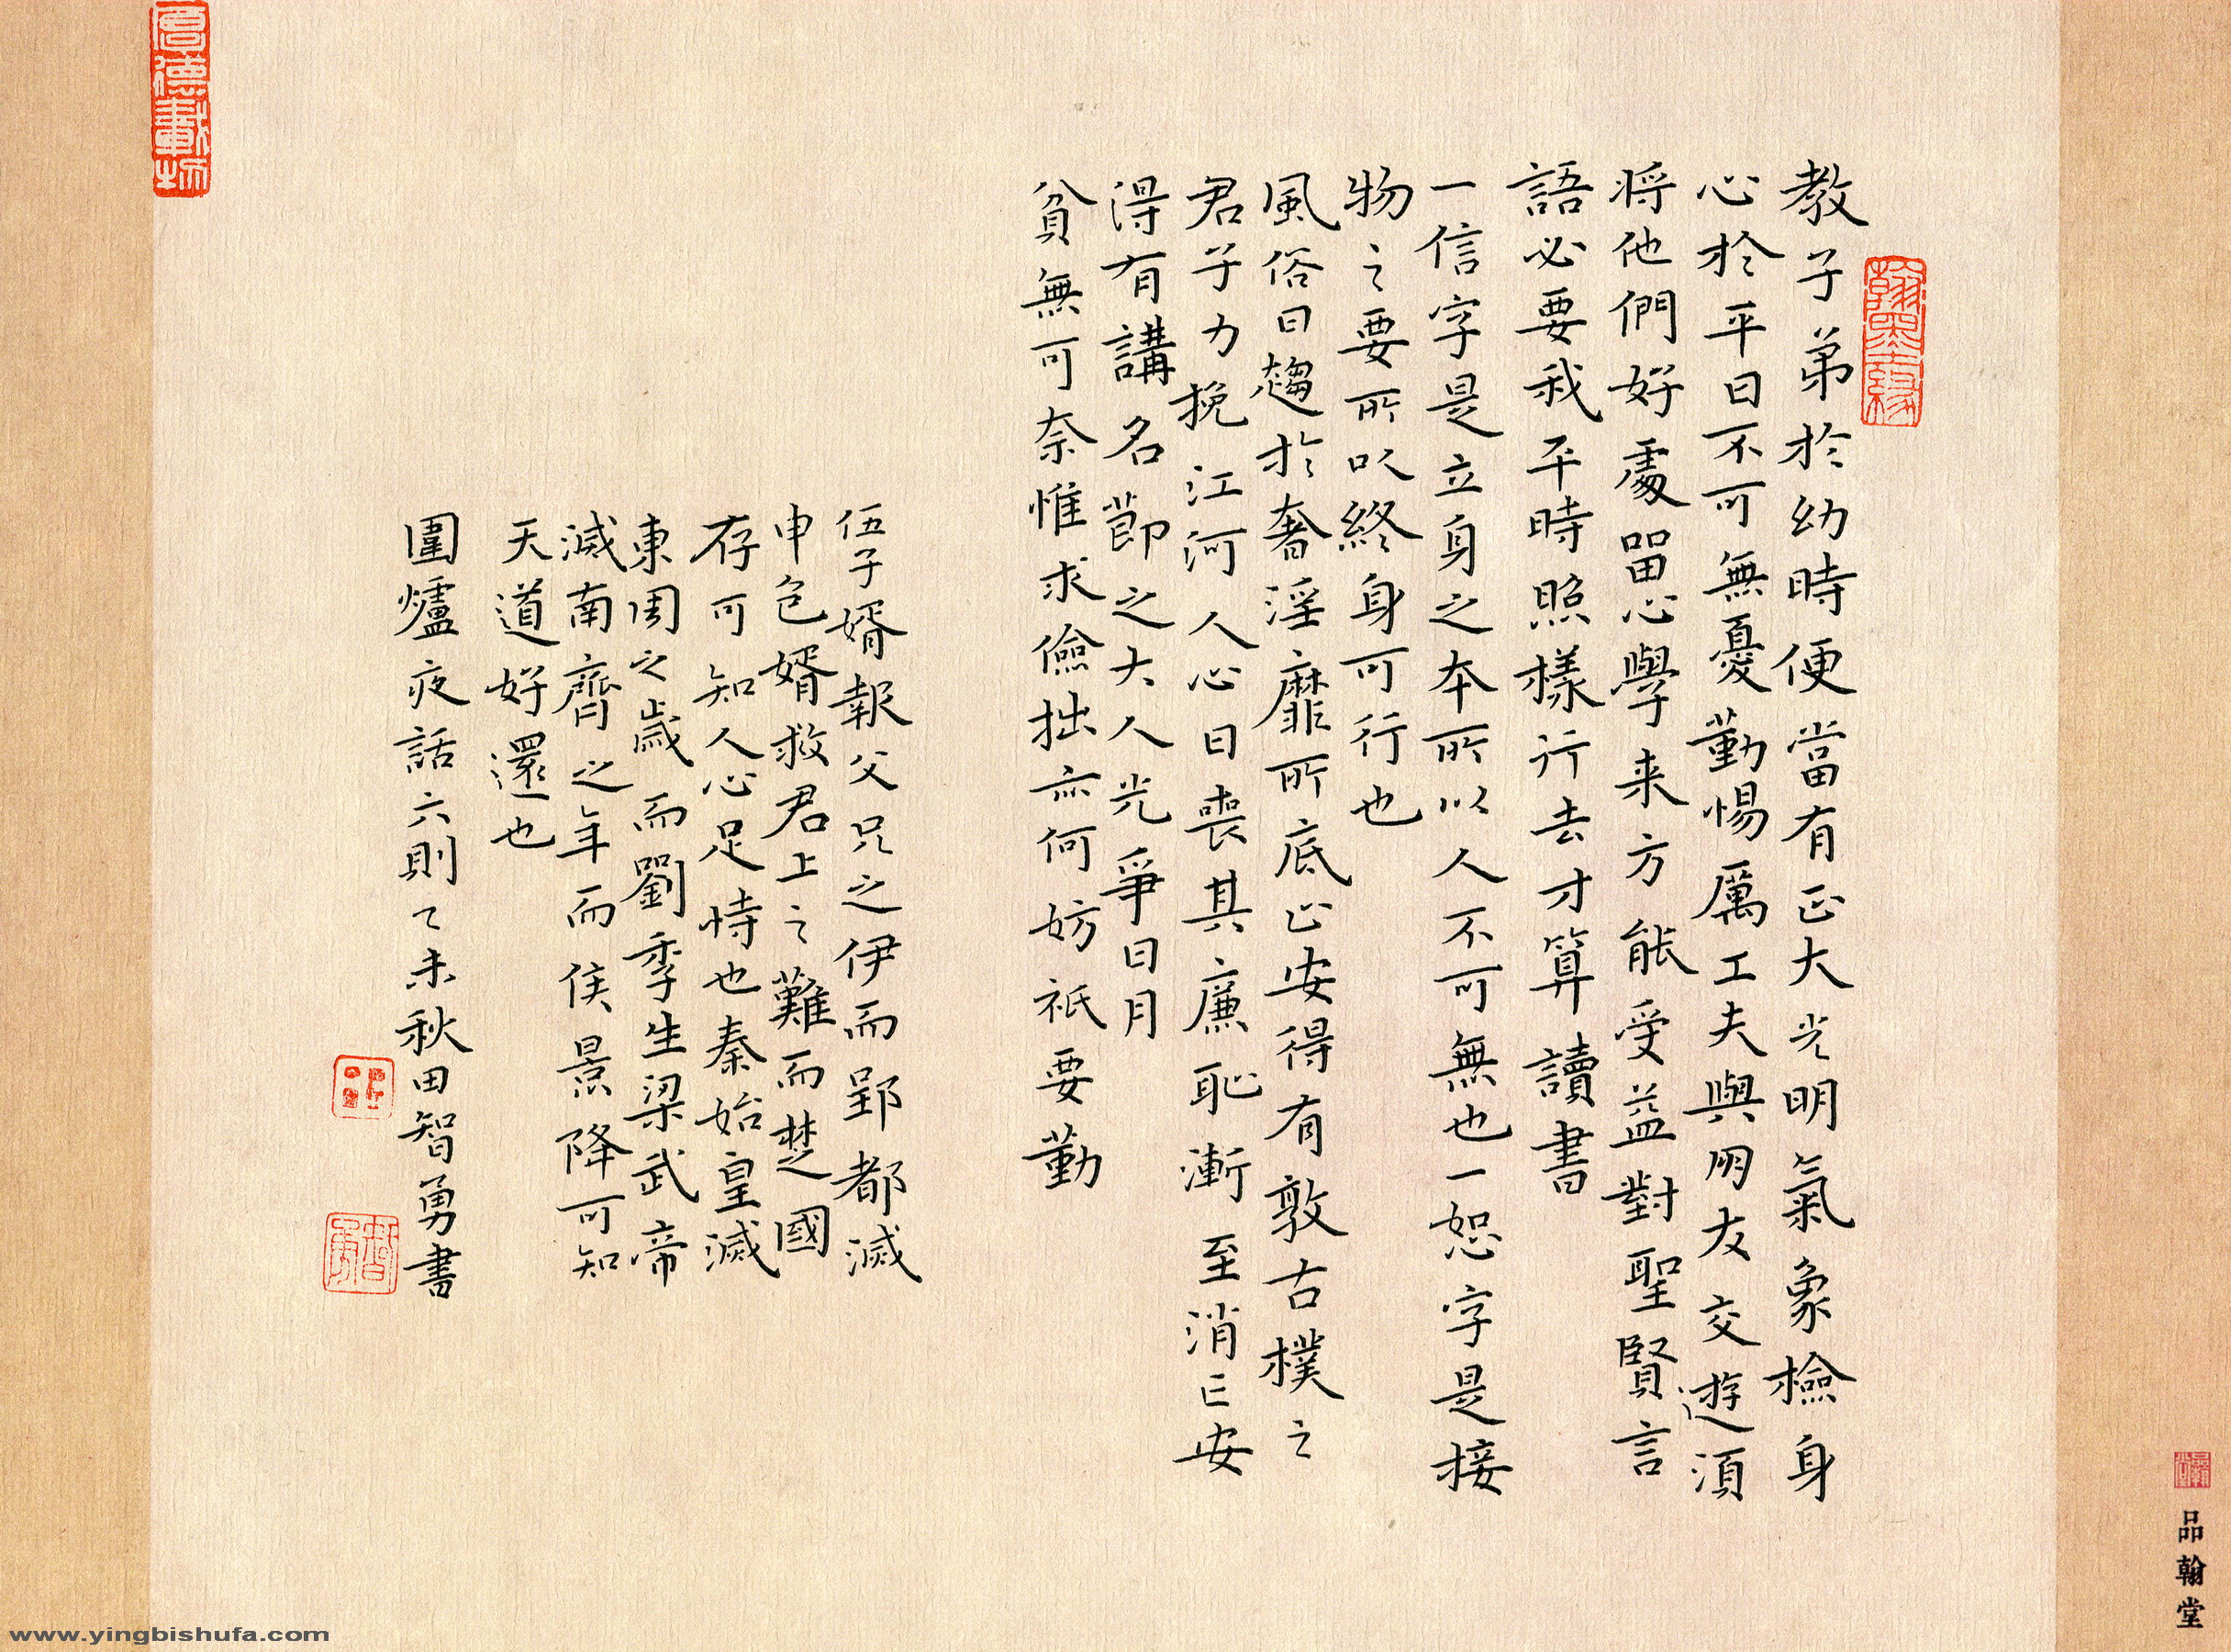 教子弟於幼時便當有正大光明氣象檢身
心於平日不可無憂勤惕厲工夫與朋友交遊須
將他們好處留心學来方能受益對聖賢言
語必要我平時照樣行去才算讀書
一信字是立身之本所以人不可無也一恕字是接
物之要所以終身可行也
風俗日趨於奢淫靡所底止安得有敦古樸之
君子力挽江河人心日喪其廉恥漸至消亡安
淂有講名節之大人光爭日月
貧無可奈惟求儉拙亦何妨祇要勤
伍子婿報父兄之伊而郢都滅
申包婿救君上之難而楚國
存可知人心足恃也秦始皇滅
東周之歲而劉季生梁武帝
滅南齊之年而侯景降可知
天道好還也
圍爐夜話六則乙未秋田智勇書
厚德載物
翰墨緣
智勇
品翰堂
www.yingbishufa.com